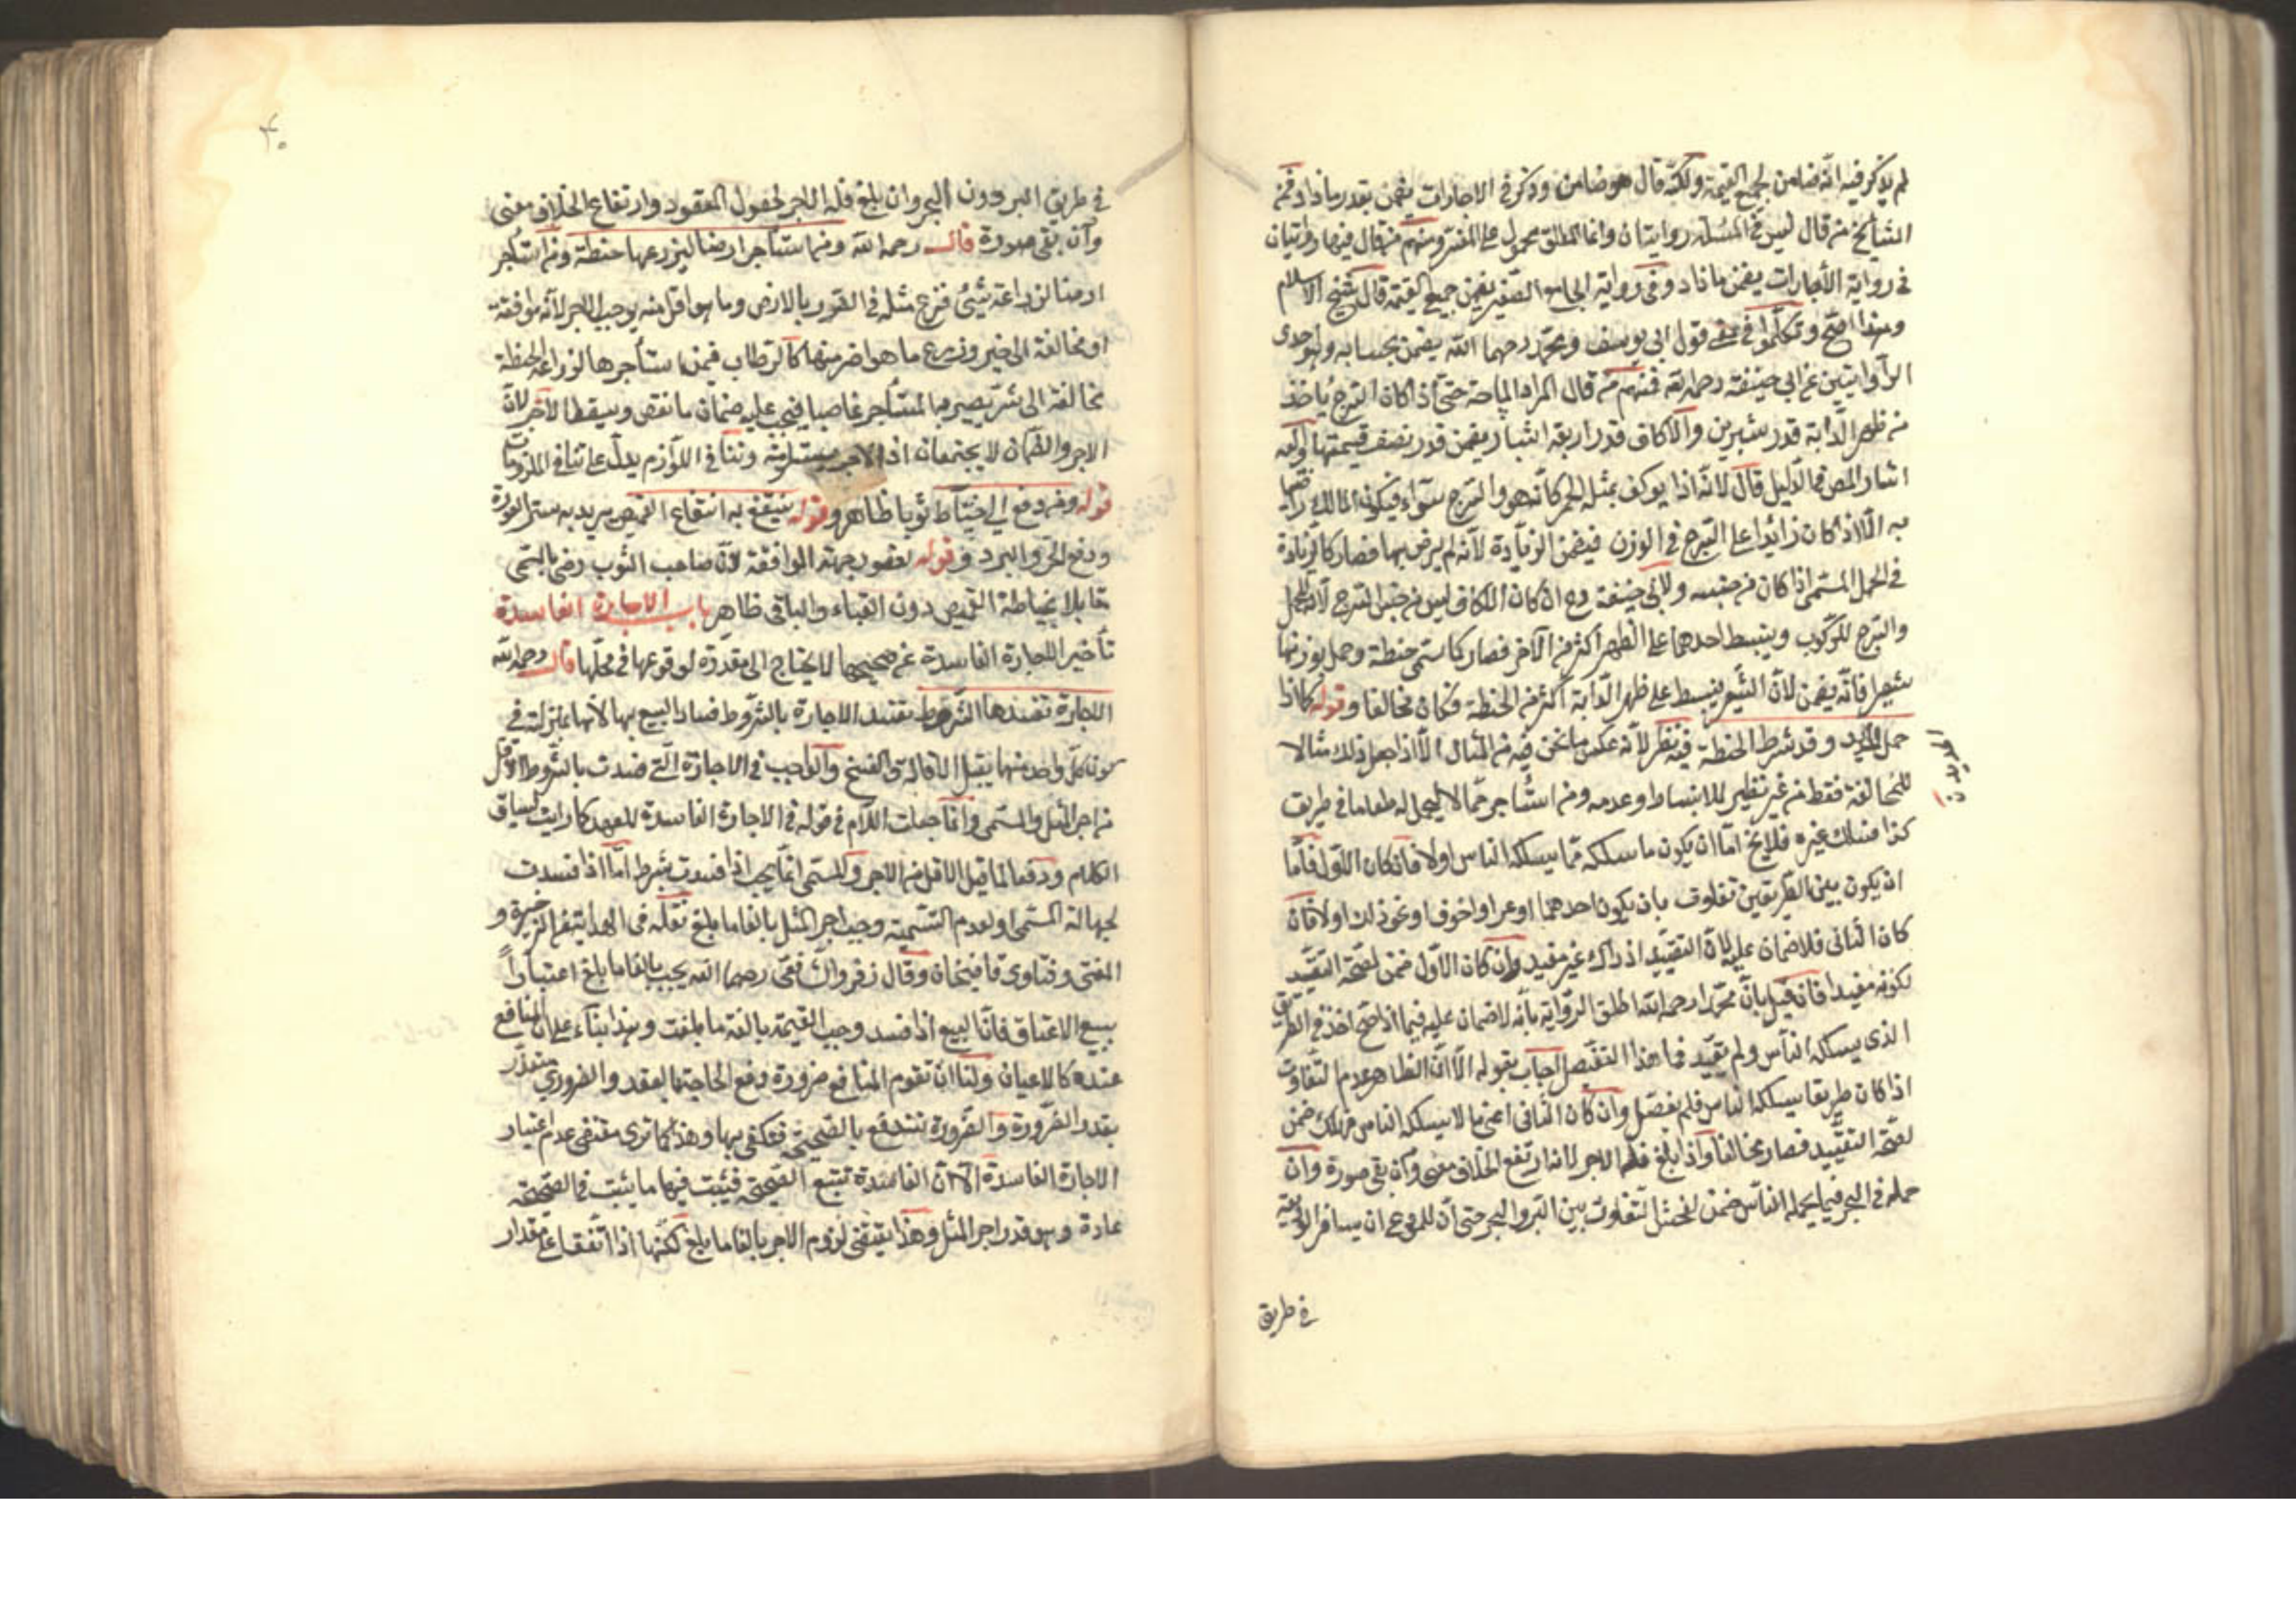 لم يذكر فيه انه ضامن لجميع القيمة ولكنه قال هو ضامن وذكر في الاجارات يضمن بقدر ما زاد فمن
المشايخ من قال ليس في المسئلة روايتان وانما المطلق محمول على المفسر ومنهم من قال فيها روايتان
في رواية الأجارات يضمن ما زاد وفي رواية الجامع الصغير يضمن جميع القيمة قال شيخ الاسلام
وهذا اصح وتكلموا في معنى قول ابي يوسف ومحمد رحمهما الله يضمن بحسابه وهو احدى
الروايتين عن ابي حنيفة رحمه الله فمنهم من قال المراد المساحة حتى اذا كان السرج ياخذ
من ظهر الدابة قدر شبرين والاكاف قدر اربعة اشبار يضمن قدر نصف قيمتها والى
اشار المص في الدليل قال لانه اذا يوكف بمثله الحمر كانه هو والسرج سواء فيكون المالك راضيا
به الا اذا كان زائدا على السرج في الوزن فيضمن الزيادة لأنه لم يرض بها فصار كالزيادة
في الحمل المسمى اذا كان من جنسه ولابي حنيفة رح ان كان الاكاف ليس من جنس السرج لانه للحمل
والسرج للركوب وينبسط احدهما على الظهر أكثر من الآخر فصار كما سمى حنطة وحمل بوزنها
شعيرا فانه يضمن لأن الشعير ينبسط على ظهر الدابة أكثر من الحنطة فكان مخالفا وقوله كما اذا
حمل الحديد وقد شرط الحنطة فيه نظر لأنه عكس ما نحن فيه من المثال الا اذا جعل ذلك مثالا
الحديد ن
للمخالفة فقط من غير نظير للانبساط وعدمه ومن استأجر حمالا ليحمل له طعاما في طريق
كذا فسلك غيره فلا يخ اما ان يكون ما سلكه مما يسلكه الناس اولا فان كان الاول فاما
ان يكون بين الطريقين تفاوت بان يكون احدهما اوعر او اخوف او نحو ذلك اولا فان
كان الثاني فلا ضمان عليه لان التقييد اذ ذاك غير مفيد وان كان الاول ضمن لصحة التقييد
لكونه مفيدا فان قيل بان محمدا رحمه الله اطلق الرواية بأنه لا ضمان عليه فيما اذا اخذ في الطريق
الذي يسلكه الناس ولم يقيد فما هذا التفصيل اجاب بقوله الا ان الظاهر عدم التفاوت
اذا كان طريقا يسلكه الناس فلم يفصل وان كان الثاني اعني ما لا يسلكه الناس فهلك ضمن
لصحة التقييد فصار مخالفا واذا بلغ فله الاجر لانه ارتفع الخلاف معنى وان بقي صورة وان
حمله في البحر فيما يحمله الناس ضمن لفحش التفاوت بين البر والبحر حتى أن للمودع ان يسافر بالوديعة
في طريق
في طريق البر دون البحر وان بلغ فله الاجر لحصول المقصود وارتفاع الخلاف معنى
وان بقي صورة قال رحمه الله ومن استأجر ارضا ليزرعها حنطة ومن استأجر
ارضا لزراعة شيئ فزرع مثله في الضرر بالارض وما هو اقل منه يوجب الاجر لأنه موافقة
او مخالفة الى خير وزرع ما هو اضر منها كالرطاب فمن استأجرها لزراعة الحنطة
مخالفة الى شر يصير بها المستأجر غاصبا فيجب عليه ضمان ما نقص ويسقط الاجر لان
الاجر والضمان لا يجتمعان اذ وتنافي اللوازم يدل على تنافي الملزومات
قوله ومن دفع الى خياط ثوبا ظاهر وقوله ينتفع به انتفاع القميص يريد به ستر العورة
ودفع الحر والبرد وقوله لقصور جهة الموافقة لان صاحب الثوب رضي بالمسمى
مقابلا بخياطة القميص دون القباء والباقي ظاهر باب الاجارة الفاسدة
تأخير الاجارة الفاسدة عن صحيحها لا يحتاج الى معذرة لوقوعها في محلها قال رحمه الله
الاجارة تفسدها الشروط تفسد الاجارة بالشروط فساد البيع بها لأنها بمنزلته في
كون كل واحد منها يقبل الاقالة والفسخ والواجب في الاجارة التي فسدت بالشروط الاقل
من اجر المثل والمسمى وانما جعلت اللام في قوله في الاجارة الفاسدة للعهد كما رايت لسياق
الكلام ودفعا لما قيل الاقل من الاجر والمسمى انما يجب اذا فسدت بشرط اما اذا فسدت
لجهالة المسمى او لعدم التسمية وجب اجر المثل بالغا ما بلغ نقله في الذخيرة و
المغني وفتاوى قاضيخان وقال زفر والشافعي رحمهما الله يجب بالغا ما بلغ اعتبارا
ببيع الاعيان فان البيع اذا فسد وجب القيمة بالغة ما بلغت وهذا بناء على ان المنافع
عنده كالاعيان ولنا ان تقوم المنافع ضرورة دفع الحاجة بالعقد والضروري يتقدر
بقدر الضرورة والضرورة تندفع بالصحيحة فيكتفى بها وهذا كما ترى مقتضى عدم اعتبار
الاجارة الفاسدة الا ان الفاسدة تتبع الصحيحة فيثبت فيها ما يثبت في الصحيحة
عادة وهو قدر اجر المثل وهذا يقتضي لزوم الاجر بالغا ما بلغ لكنها اذا اتفقا على مقدار